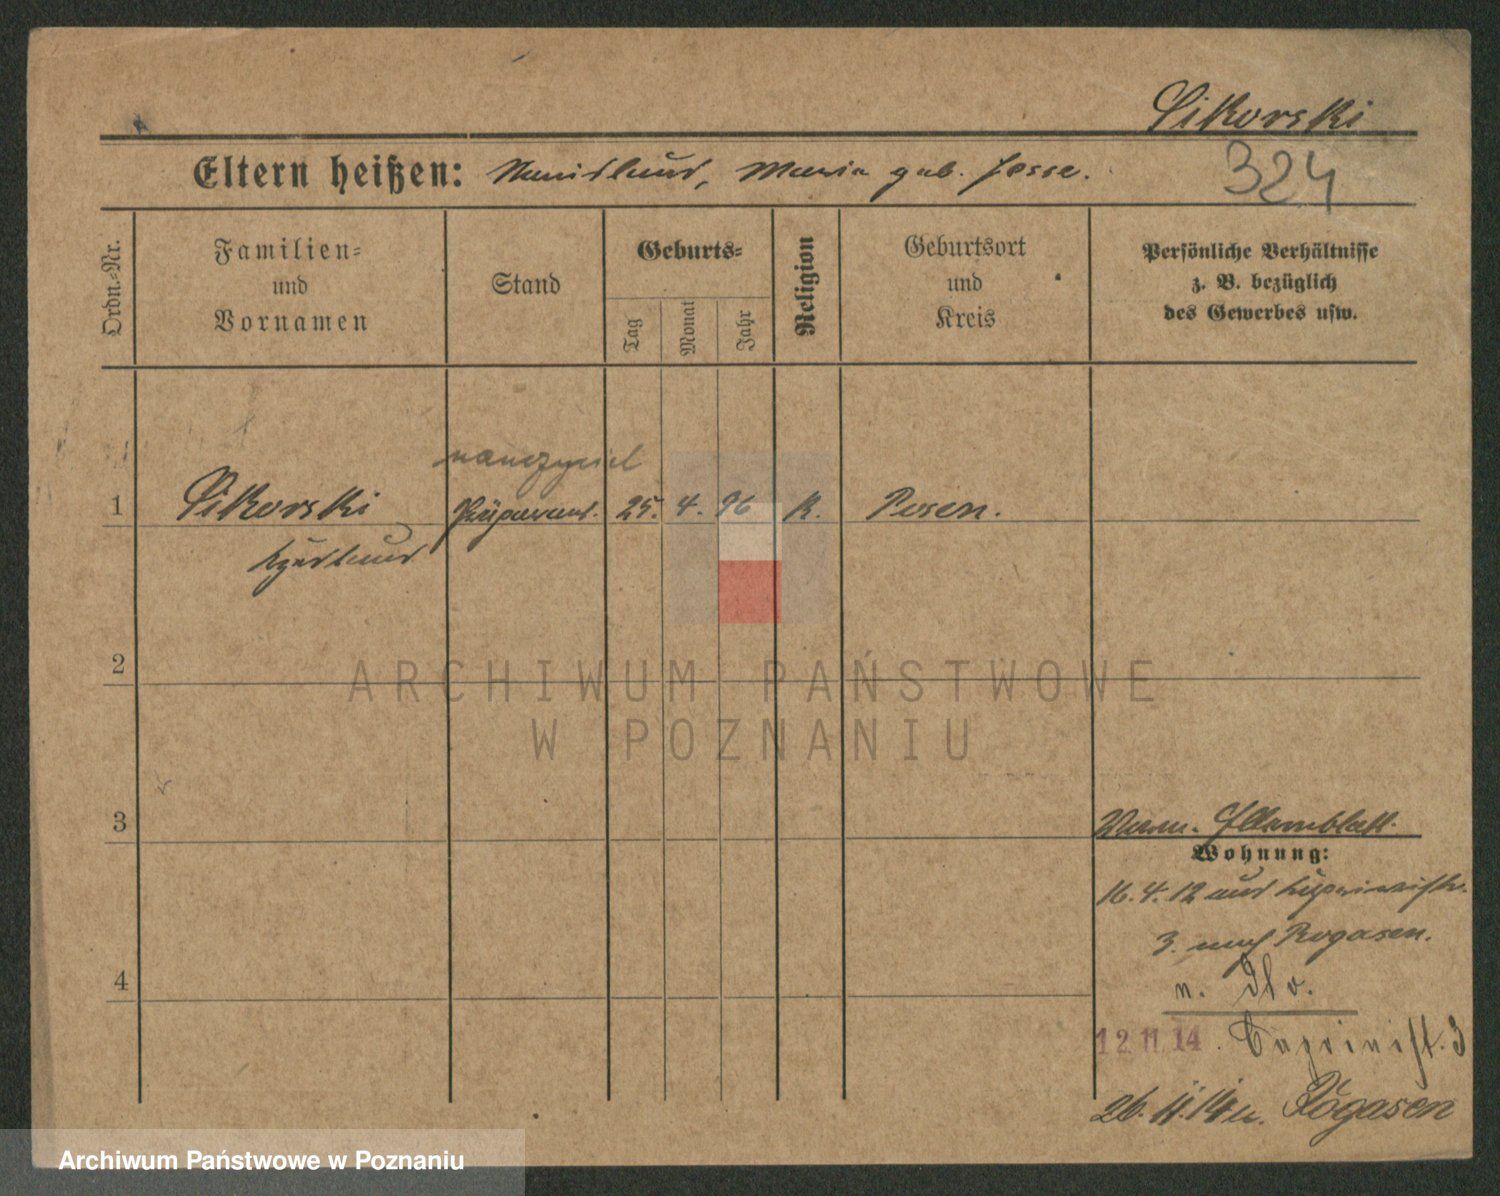 Sikorski
Eltern heißen: Stanislaus, Maria geb. Jesse.
324
Ordn.-Nr.
Familien-
und
Vornamen
Stand
Geburts-
Tag
Monat
Jahr
Religion
Geburtsort
und
Kreis
Persönliche Verhältnisse
z. B. bezüglich
des Gewerbes usw.
nauczyciel
1 Sikorski Präparand. 25. 4. 96 K. Posen.
2
3
Wohnung:
16. 4. 12
3. nach Rogasen.
4
n.
12.11.14. 3
26. 11. 14 Rogasen
ARCHIWUM PAŃSTWOWE
W POZNANIU
Archiwum Państwowe w Poznaniu